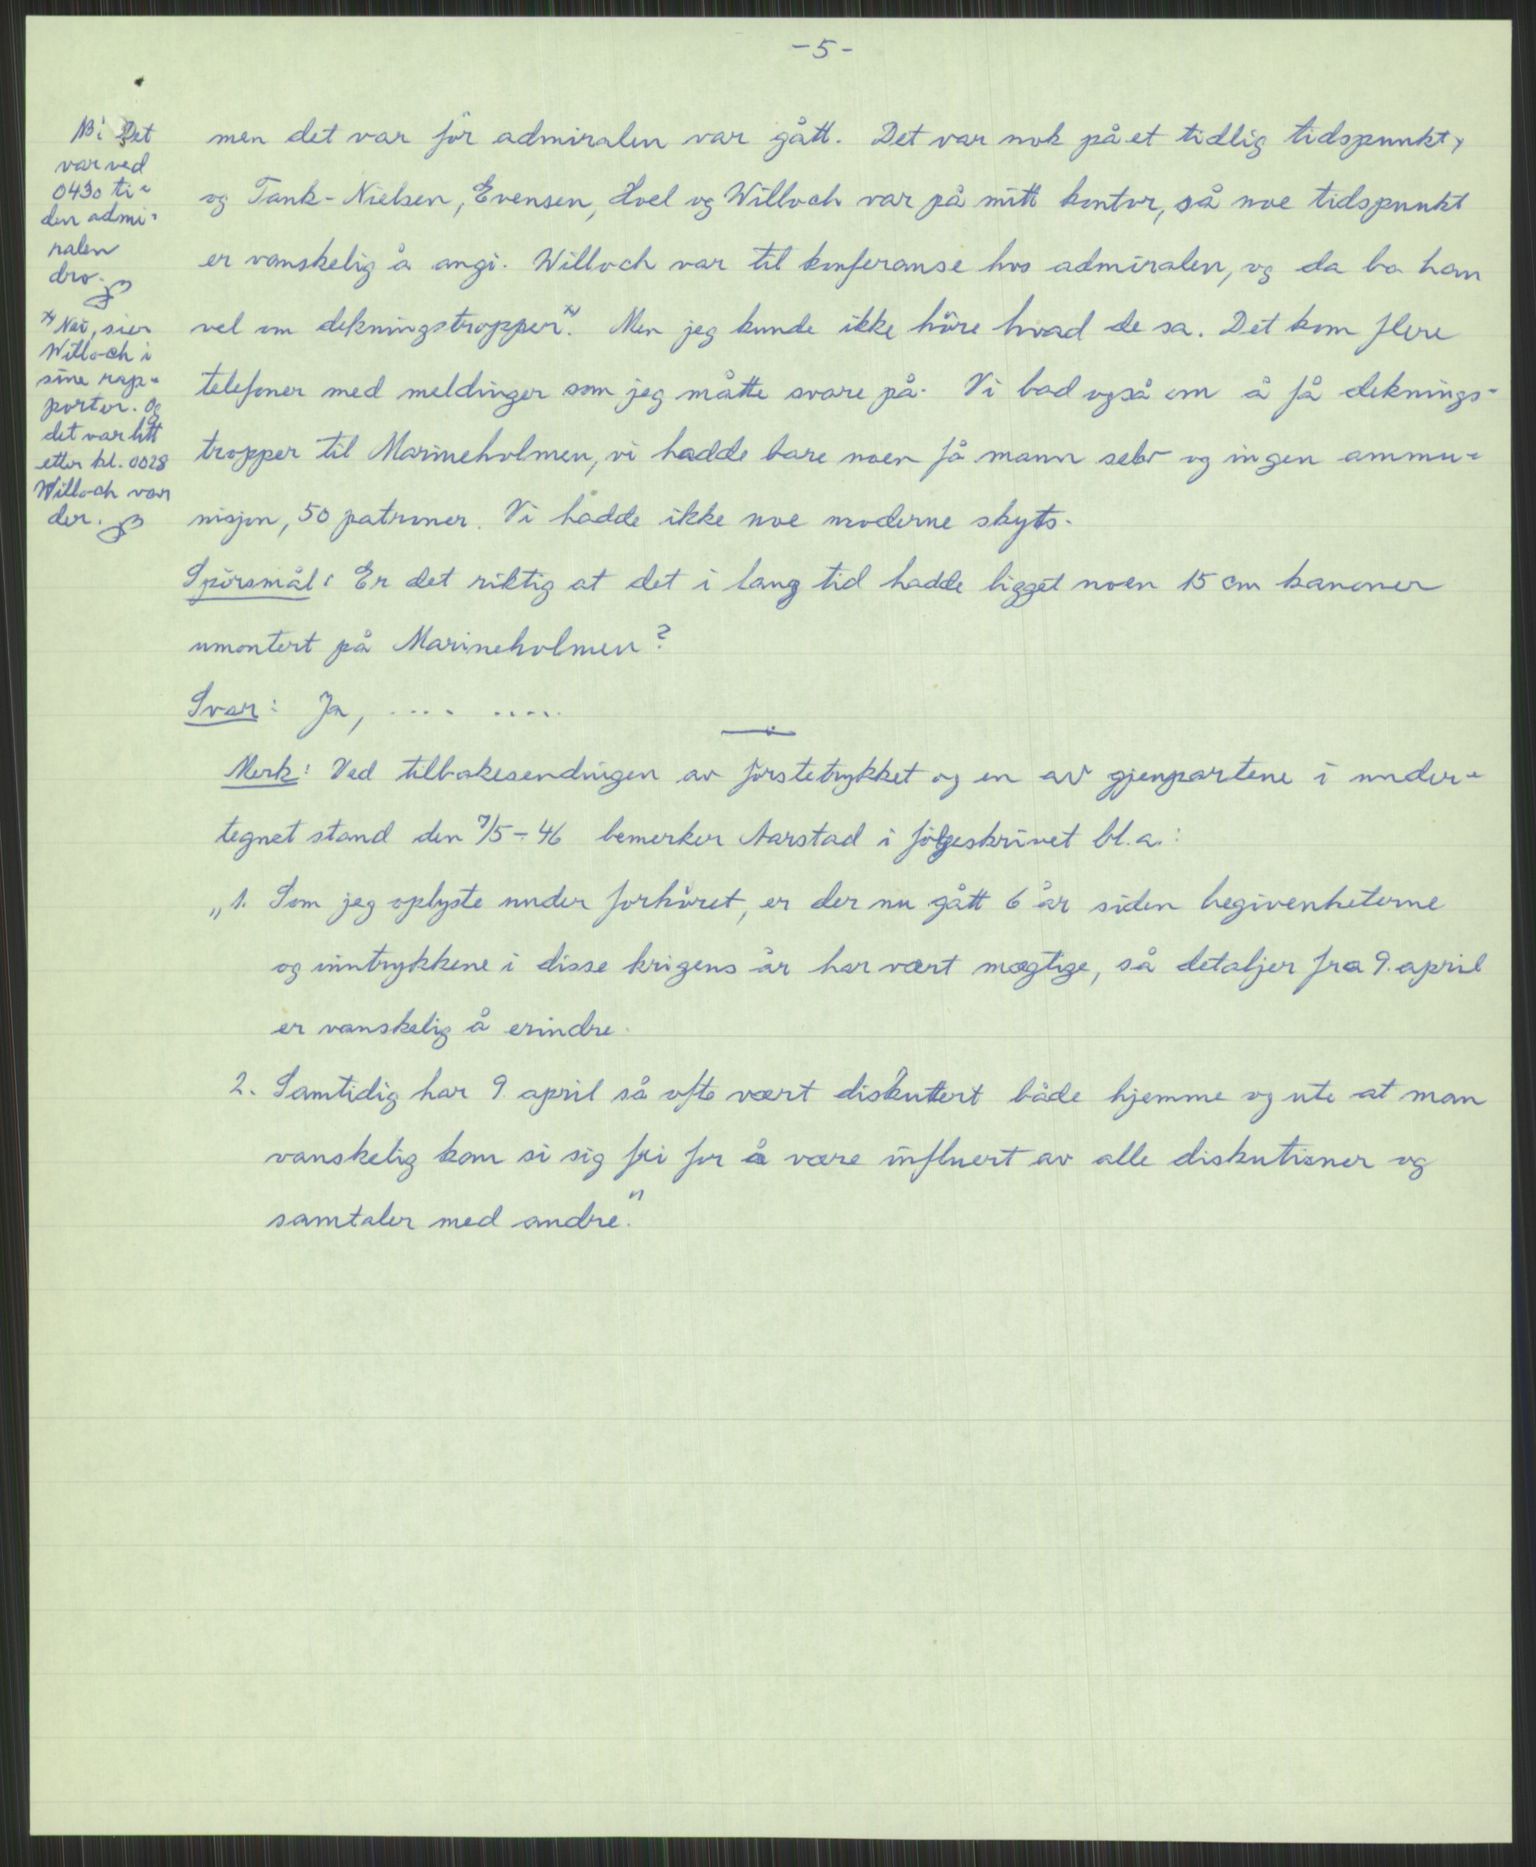 -5-
NB! Det
var ved
0430 ti-
den admi-
ralen
dro.
x) Nei, sier
Willoch i
sine rap-
porter. Og
det var litt
etter kl. 0028
Willoch var
der.
men det var för admiralen var gått. Det var nok på et tidlig tidspunkt,
og Tank-Nielsen, Evensen, Hoel og Willoch var på mitt kontor, så noe tidspunkt
er vanskelig å angi. Willoch var til konferanse hos admiralen, og da ba han
vel om dekningstropper x). Men jeg kunde ikke höre hvad de sa. Det kom flere
telefoner med meldinger som jeg måtte svare på. Vi bad også om å få deknings-
tropper til Marineholmen, vi hadde bare noen få mann selv og ingen ammu-
nisjon, 50 patroner. Vi hadde ikke noe moderne skyts.
Spörsmål: Er det riktig at det i lang tid hadde ligget noen 15 cm kanoner
umontert på Marineholmen?
Svar: Ja, .... .....
Merk: Ved tilbakesendingen av förstetrykket og en av gjenpartene i under-
tegnet stand den 7/5-46 bemerker Aarstad i fölgeskrivet bl.a.:
„1. Som jeg oplyste under forhöret, er der nu gått 6 år siden begivenheterne
og inntrykkene i disse krigens år har vært mægtige, så detaljer fra 9. april
er vanskelig å erindre.
2. Samtidig har 9. april så ofte vært diskutert både hjemme og ute at man
vanskelig kan si sig fri for å være influert av alle diskusjoner og
samtaler med andre."